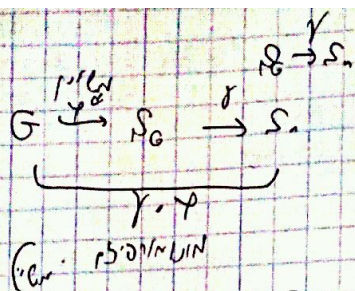 S_G \xrightarrow{γ} S_n
G \xrightarrow{φ} S_G \xrightarrow{γ} S_n
γ∘φ
מונומורפיזם